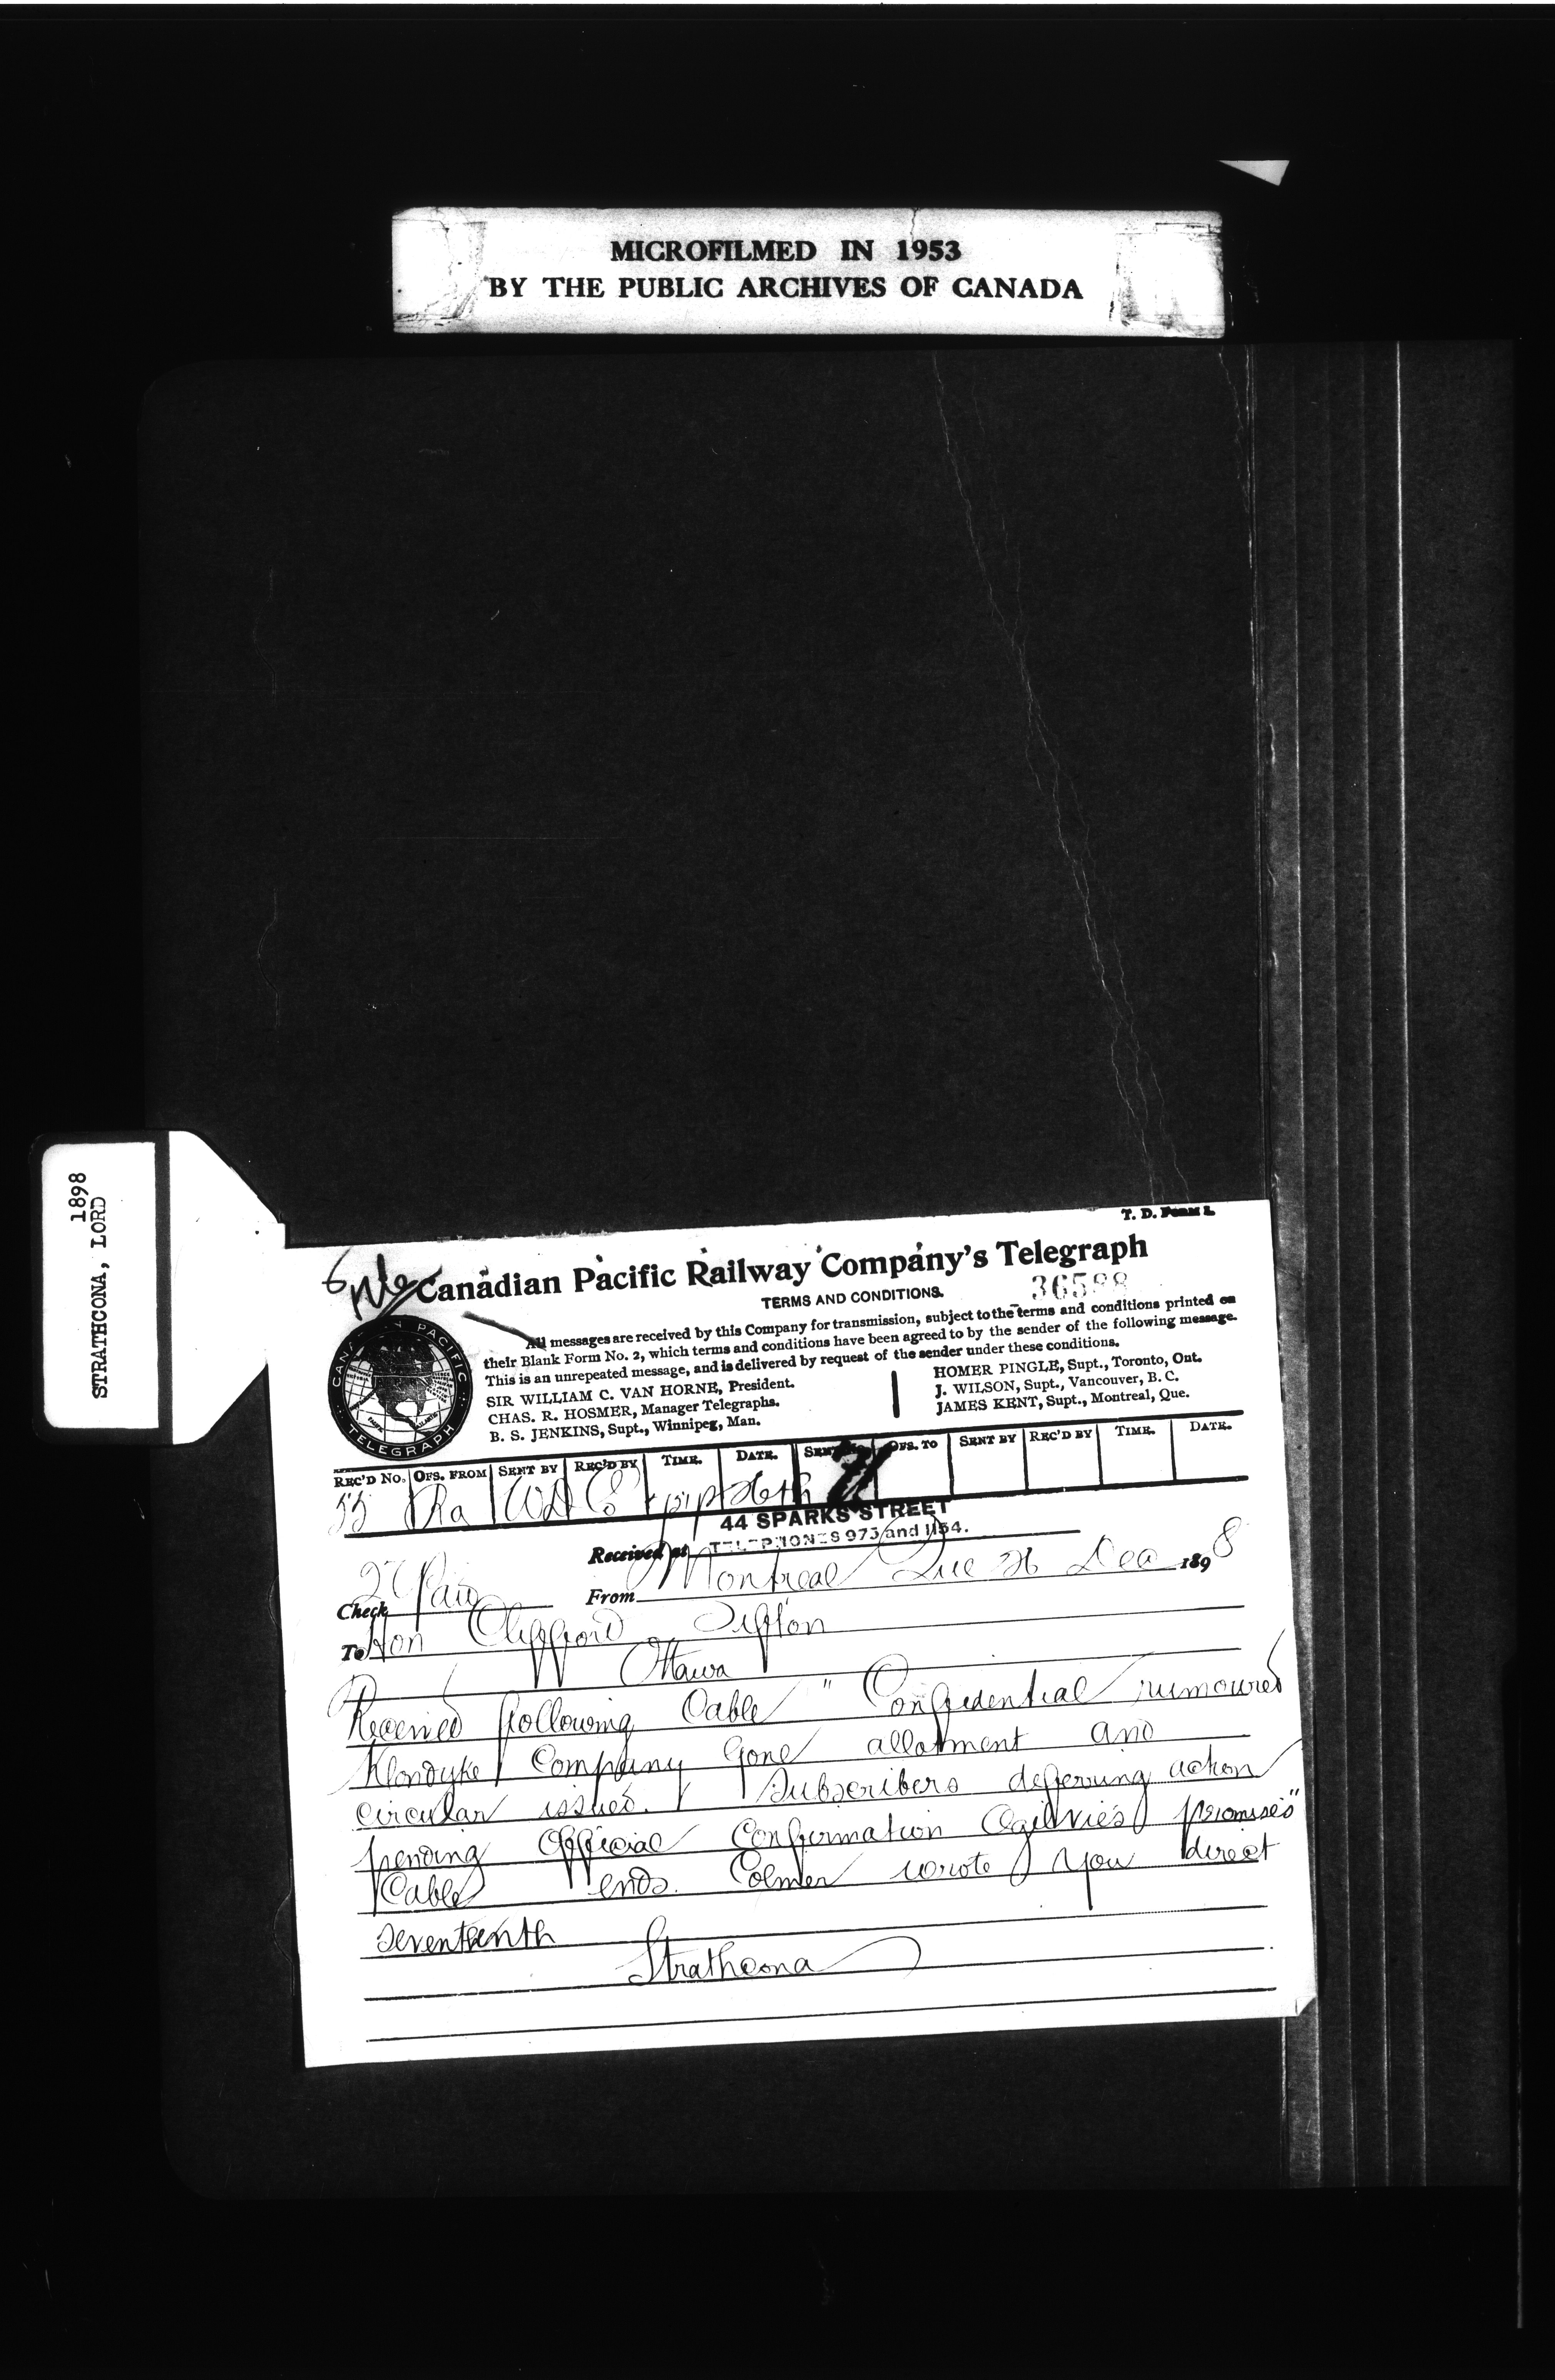 MICROFILMED IN 1953
BY THE PUBLIC ARCHIVES OF CANADA
1898
STRATHCONA, LORD
T. D. FORM 1.
File
Canadian Pacific Railway Company's Telegraph
TERMS AND CONDITIONS.
36588
All messages are received by this Company for transmission, subject to the terms and conditions printed on
their Blank Form No. 2, which terms and conditions have been agreed to by the sender of the following message.
This is an unrepeated message, and is delivered by request of the sender under these conditions.
SIR WILLIAM C. VAN HORNE, President.
CHAS. R. HOSMER, Manager Telegraphs.
B. S. JENKINS, Supt., Winnipeg, Man.
HOMER PINGLE, Supt., Toronto, Ont.
J. WILSON, Supt., Vancouver, B. C.
JAMES KENT, Supt., Montreal, Que.
CANADIAN PACIFIC
TELEGRAPH
REC'D NO. OFS. FROM SENT BY REC'D BY TIME. DATE. SENT NO. OFS. TO SENT BY REC'D BY TIME. DATE.
55 Ra WD 26th
44 SPARKS STREET
Received at TELEPHONES 973 and 1154.
Check 27 Paid From Montreal Que 26 Dec 1898
To Hon Clifford Sifton
Ottawa
Received following Cable " Confidential rumoured
Klondyke Company gone allotment and
circular issued. Subscribers deferring action
pending Official Confirmation Ogilvie's promises"
Cable ends. Colmer wrote you direct
seventeenth
Strathcona